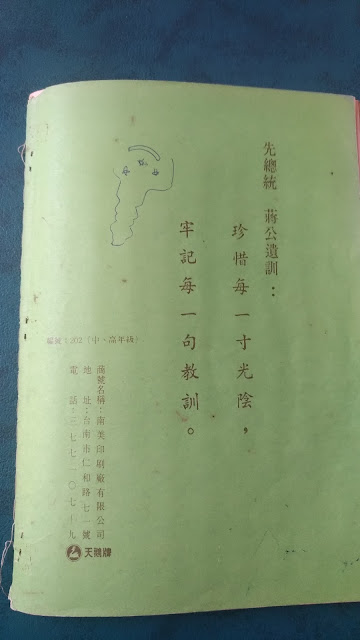 先總統　蔣公遺訓：
珍惜每一寸光陰，
牢記每一句教訓。
編號：202（中、高年級）
商號名稱：南美印刷廠有限公司
地　址：台南市仁和路七一號
電　話：三七七二〇七－九
天鵝牌